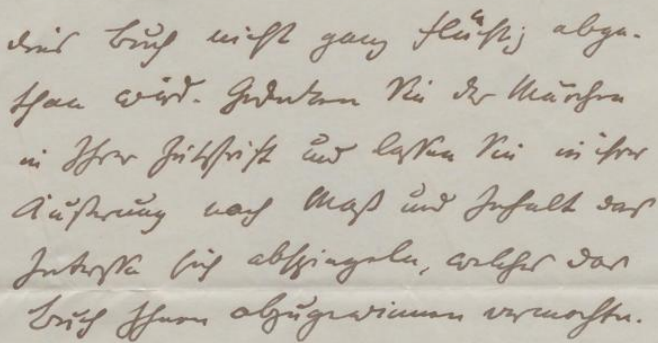 dies Buch nicht ganz flüchtig abge-
than wird. Gedenken Sie der Märchen
in Ihrer Zeitschrift und lassen Sie in ihrer
Äußerung nach Maß und Inhalt das
Interesse sich abspiegeln, welches das
Buch Ihnen abzugewinnen vermochte.